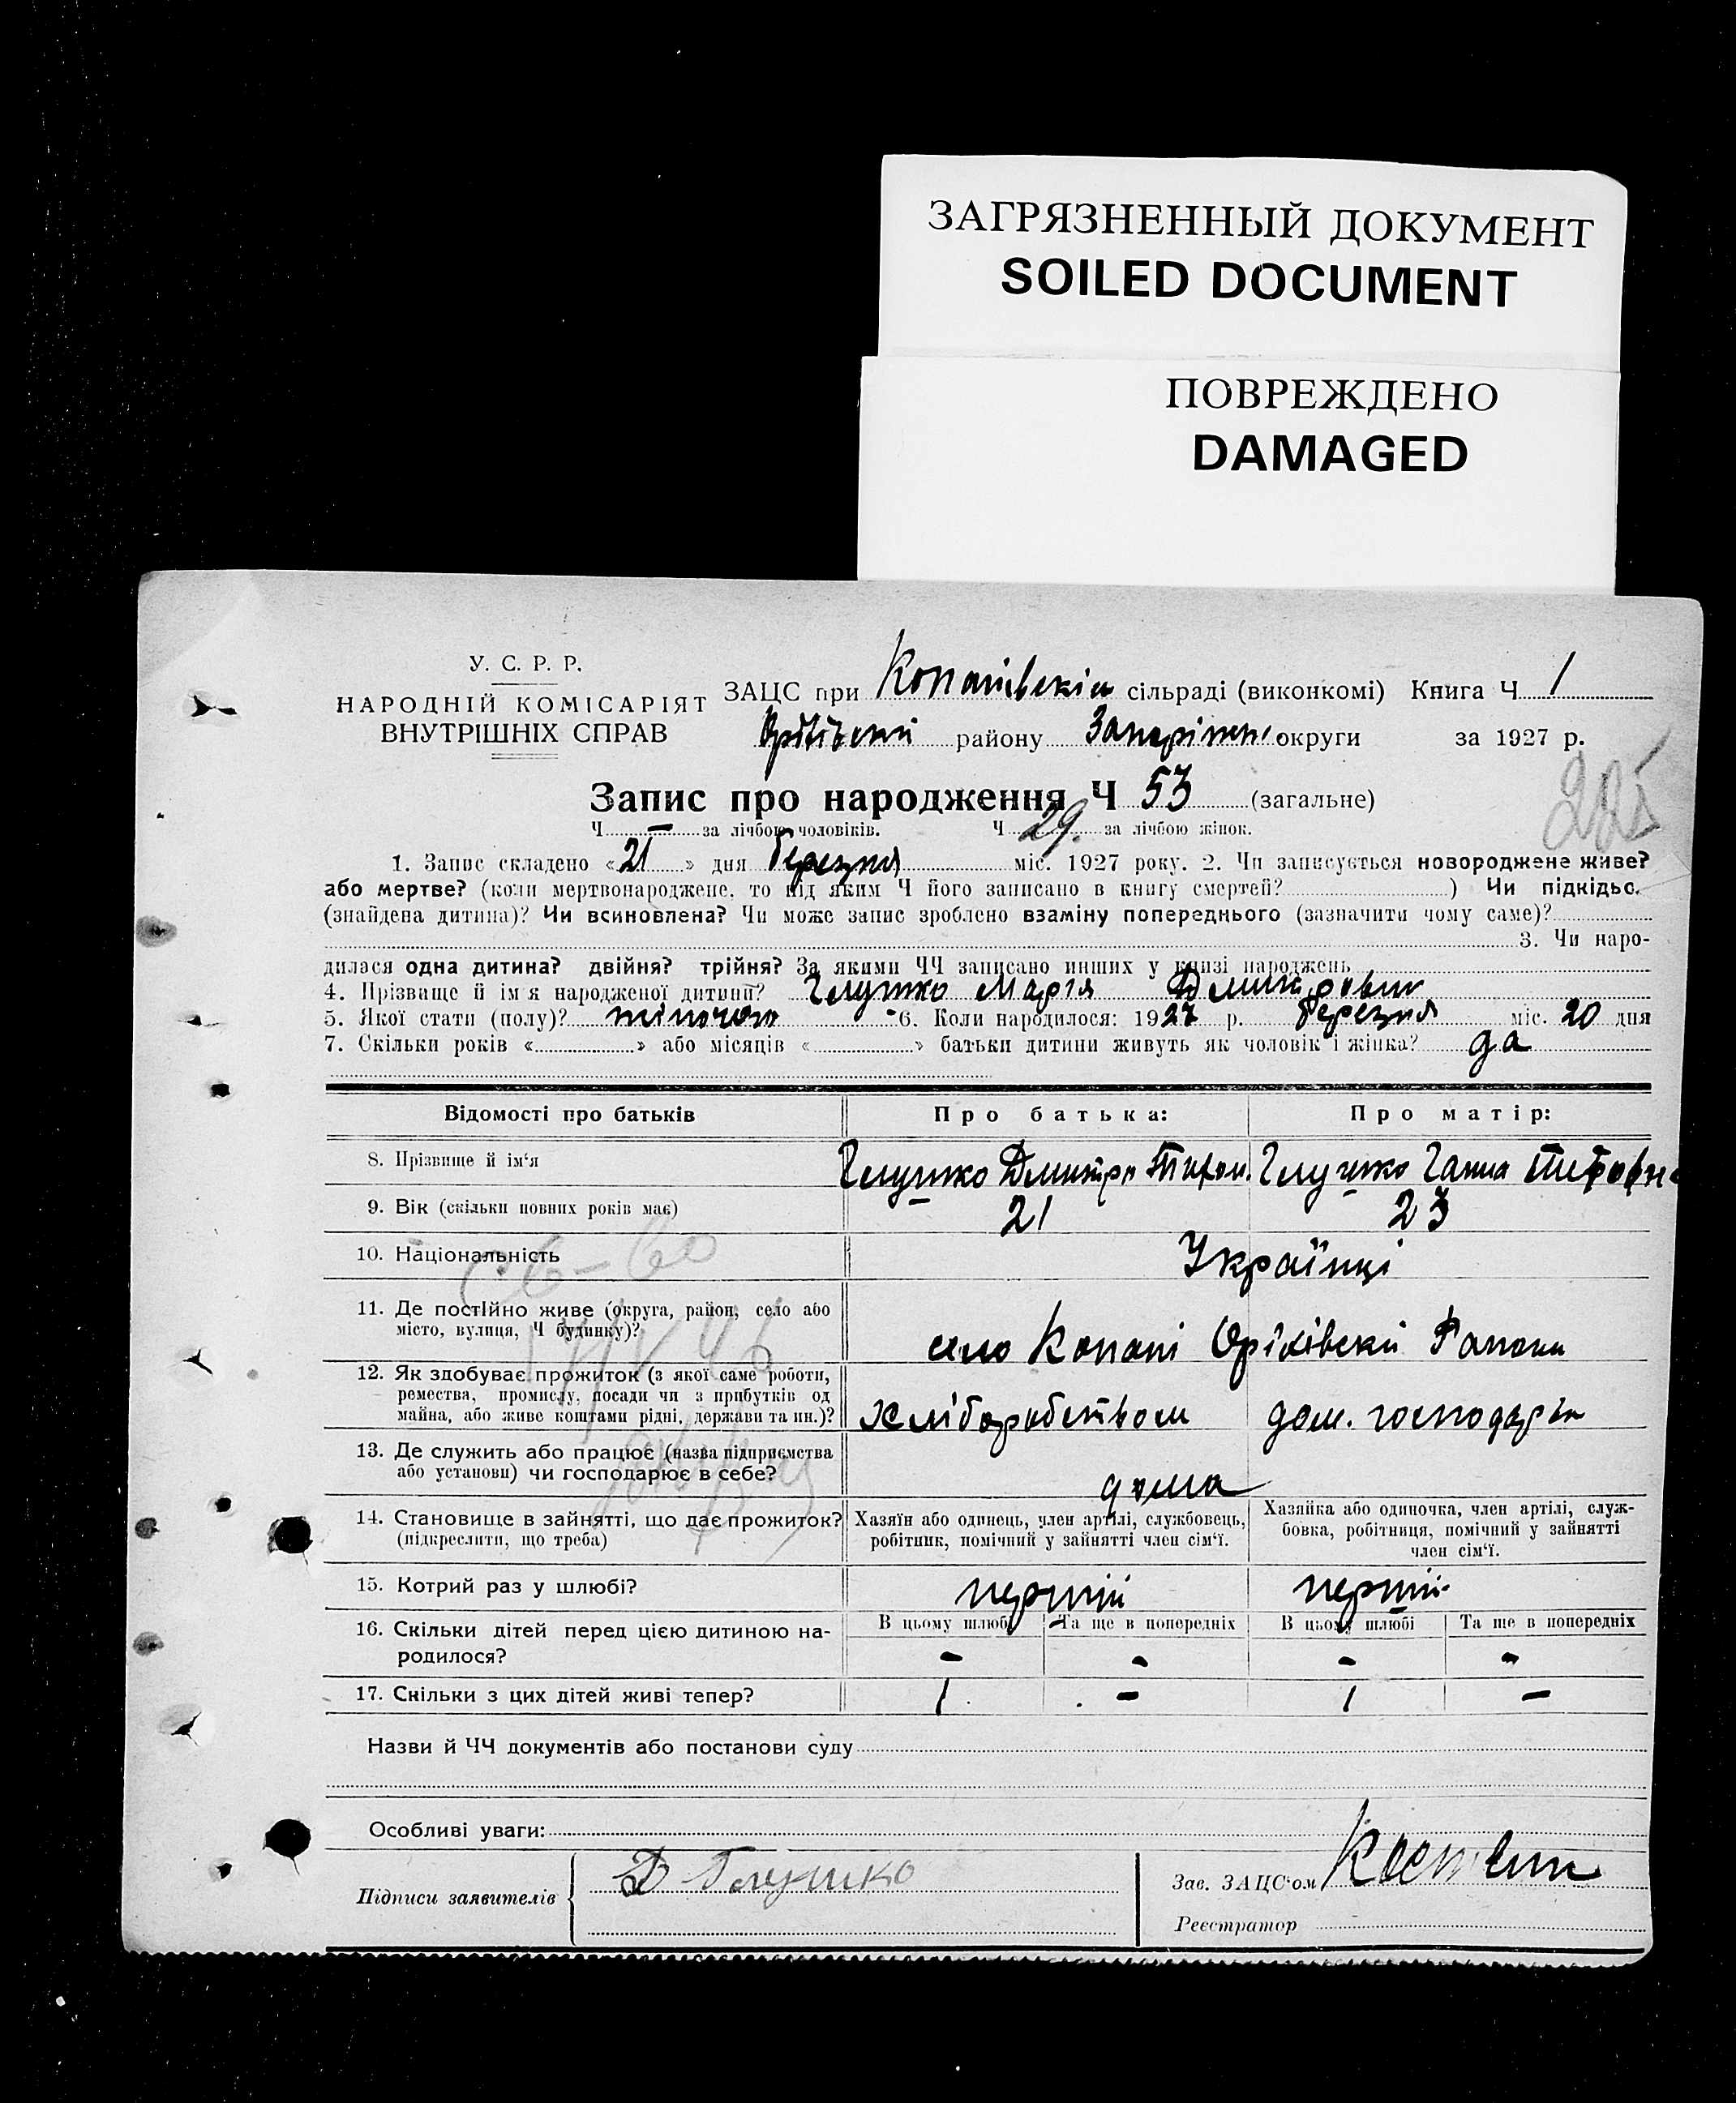 ЗАГРЯЗНЕННЫЙ ДОКУМЕНТ
SOILED DOCUMENT
ПОВРЕЖДЕНО
DAMAGED
У. С. Р. Р.
НАРОДНІЙ КОМІСАРІЯТ
ВНУТРІШНІХ СПРАВ
ЗАЦС при Копанівскій сільраді (виконкомі) Книга Ч 1
Оріхівский району Запоріжж. округи за 1927 р.
225
Запис про народження Ч 53 (загальне)
Ч — за лічбою чоловіків. Ч 29. за лічбою жінок.
1. Запис складено «21» дня березня міс. 1927 року. 2. Чи записується новороджене живе?
або мертве? (коли мертвонароджене, то під яким Ч його записано в книгу смертей? ) Чи підкідьо.
(знайдена дитина)? Чи всиновлена? Чи може запис зроблено взаміну попереднього (зазначити чому саме)?
3. Чи наро-
дилася одна дитина? двійня? трійня? За якими ЧЧ записано инших у книзі народжень
4. Прізвище й ім'я народженої дитини? Глушко Марія
5. Якої стати (полу)? жіночого 6. Коли народилося: 1927 р. березня міс. 20 дня
7. Скільки років « » або місяців « » батьки дитини живуть як чоловік і жінка? да
Відомості про батьків Про батька: Про матір:
8. Прізвище й ім'я Глушко Дмитро Глушко Ганна
9. Вік (скільки повних років має) 21 23
10. Національність Українці
11. Де постійно живе (округа, район, село або
місто, вулиця, Ч будинку)? село Копані Оріхівский Району
12. Як здобуває прожиток (з якої саме роботи,
ремества, промислу, посади чи з прибутків од
майна, або живе коштами рідні, держави та ин.)? хліборобством дом. господарін
13. Де служить або працює (назва підприємства
або установи) чи господарює в себе? дома
14. Становище в зайнятті, що дає прожиток?
(підкреслити, що треба)
Хазяїн або одинець, член артілі, службовець,
робітник, помічний у зайнятті член сім'ї.
Хазяйка або одиночка, член артілі, служ-
бовка, робітниця, помічний у зайнятті
член сім'ї.
15. Котрий раз у шлюбі? перший перший
16. Скільки дітей перед цією дитиною на-
родилося?
В цьому шлюбі Та ще в попередніх В цьому шлюбі Та ще в попередніх
- - - -
17. Скільки з цих дітей живі тепер? 1 - 1 -
Назви й ЧЧ документів або постанови суду
Особливі уваги:
Підписи заявителів Д Глушко
Зав. ЗАЦС'ом
Реєстратор